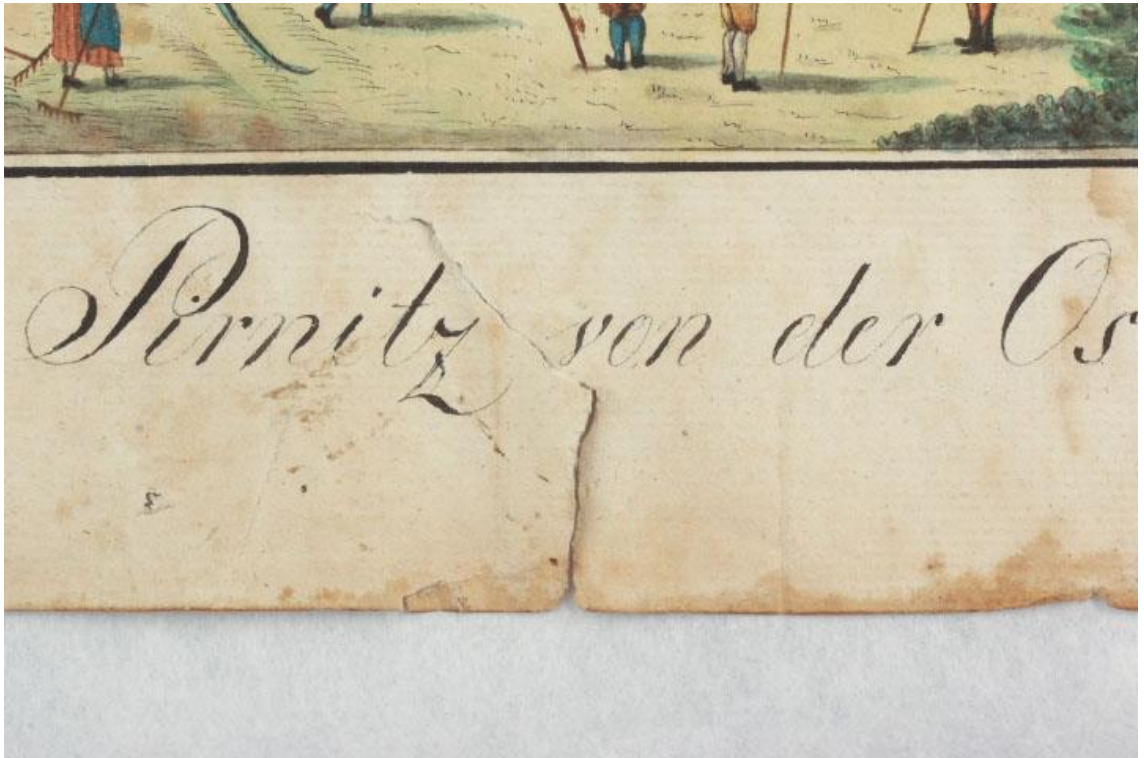 Pirnitz von der Os